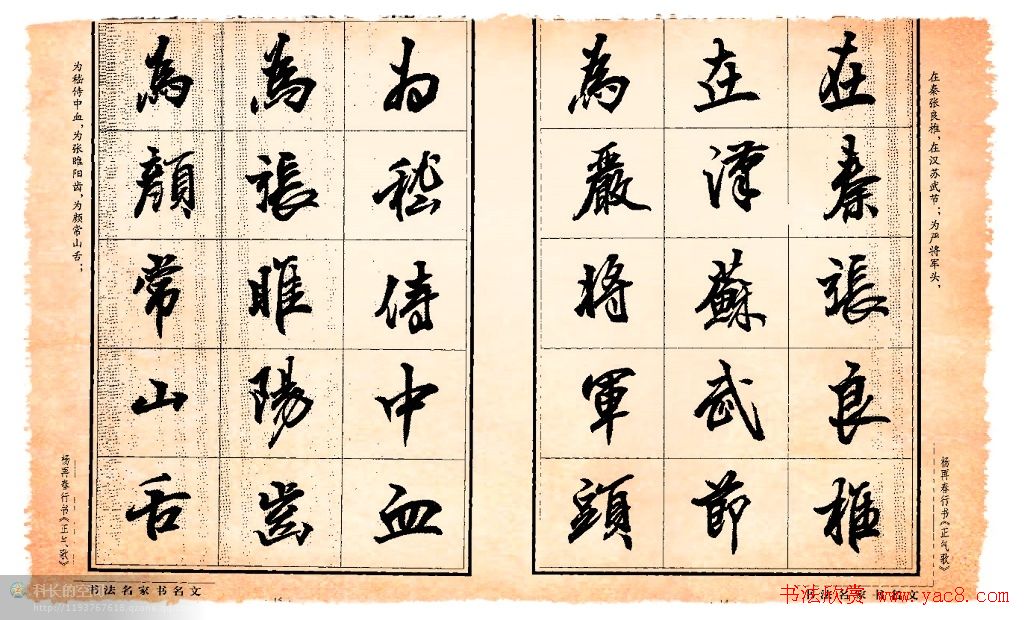 在秦张良椎，在汉苏武节；为严将军头，
在秦張良椎
在漢蘇武節
為嚴將軍頭
杨再春行书《正气歌》
书法名家书名文
為嵇侍中血
為張睢陽齒
為顏常山舌
为嵇侍中血，为张睢阳齿，为颜常山舌；
杨再春行书《正气歌》
书法名家书名文
科长的空间
书法欣赏 www.yac8.com